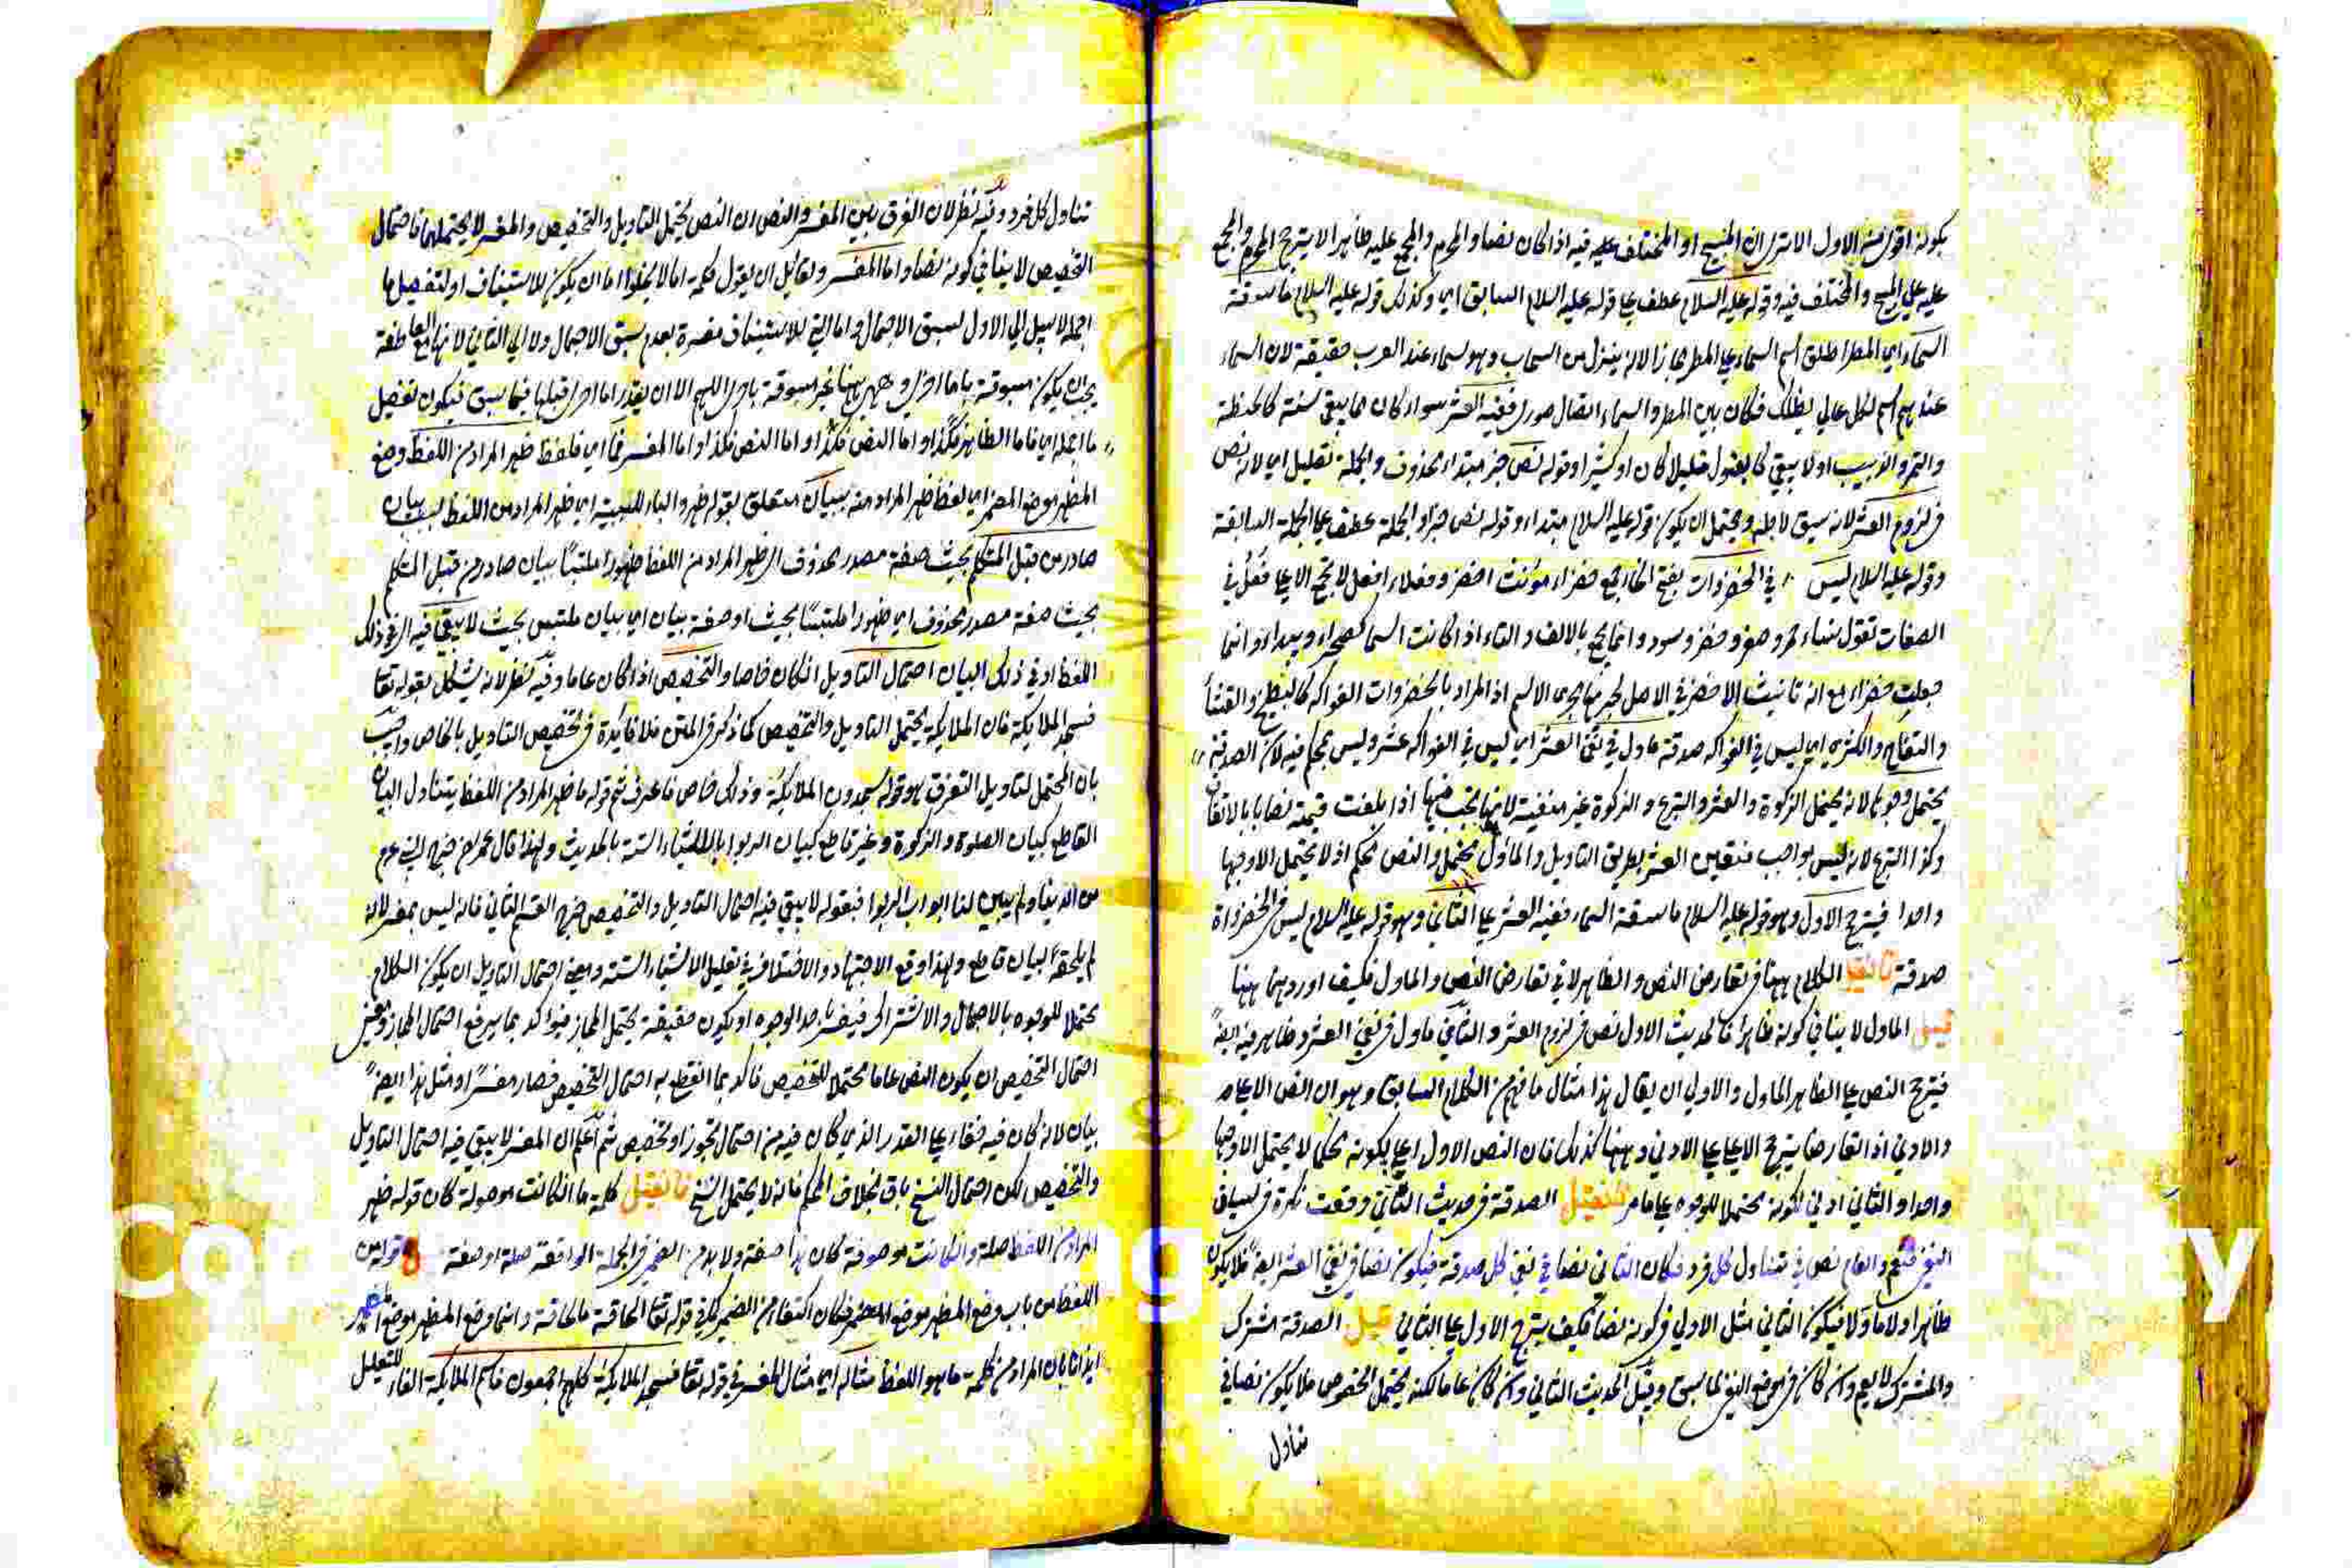 بكونه اقوى من الاول الا ترى ان المبيح او المختلف عليه فيه اذا كان نصا والمحرم والمجمع عليه ظاهرا لا يترجح المحرم والمجمع
عليه على المبيح والمختلف فيه وقوله عليه السلام عطف على قوله عليه السلام السابق اي وكذلك قوله عليه السلام ما سقته
السماء اي المطر اطلق اسم السماء على المطر مجازا لانه ينزل من السحاب وهو سماء عند العرب حقيقة لان السماء
عندهم اسم لكل عالي يظلك فكان بين المطر والسماء اتصال صوري ففيه العشر سواء كان مما يبقى سنة كالحنطة
والتمر والزبيب او لا يبقى كالبقول قليلا كان او كثيرا وقوله نص خبر مبتداء محذوف والجملة تعليل اي لانه نص
في لزوم العشر لانه سيق لاجله ويحتمل ان يكون قوله عليه السلام مبتداء وقوله نص خبره والجملة عطف على الجملة السابقة
وقوله عليه السلام ليس في الخضروات بفتح الخاء جمع خضراء مؤنث اخضر وفعلاء افعل لا تجمع الا على فعل في
الصفات تقول نساء حمر وصفر وخضر وسود وانما يجمع بالالف والتاء اذا كانت اسما كصحراء وبيداء وانما
جمعت خضراء مع انه تانيث الاخضر في الاصل لجريها مجرى الاسم اذ المراد بالخضروات الفواكه كالبطيخ والقثاء
والتفاح والكمثرى اي ليس في الفواكه صدقة ماول في نفي العشر اي ليس في الفواكه عشر وليس بمحكم فيه لان الصدقة
يحتمل وجوها لانه يحتمل الزكوة والعشر والتبرع والزكوة غير منفية لانها تجب فيها اذا بلغت قيمته نصابا بالاتفاق
وكذا التبرع لانه ليس بواجب فتعين العشر بطريق التاويل والماول يحتمل والنص محكم اذ لا يحتمل الا وجها
واحدا فيترجح الاول وهو قوله عليه السلام ما سقته السماء ففيه العشر على الثاني وهو قوله عليه السلام ليس في الخضروات
صدقة فان قيل الكلام ههنا في تعارض النص والظاهر لا في تعارض النص والماول فكيف اوردهما ههنا
قيل الماول لا ينافي كونه ظاهرا فالحديث الاول نص في لزوم العشر والثاني ماول في نفي العشر وظاهر فيه ايضا
فيترجح النص على الظاهر الماول والاولى ان يقال هذا مثال ما فهم من الكلام السابق وهو ان النص الاعلى
والادنى اذا تعارضا يترجح الاعلى على الادنى وههنا كذلك فان النص الاول اعلى بكونه محكما لا يحتمل الا وجها
واحدا والثاني ادنى لكونه محتملا للوجوه على ما مر فان قيل الصدقة في حديث الثاني وقعت نكرة في سياق
النفي فتعم والعام نص في تناول كل فرد فكان الثاني نصا في نفي كل صدقة فيكون نصا في نفي العشر ايضا فلا يكون
ظاهرا ولا ماولا فيكون الثاني مثل الاول في كونه نصا فكيف يترجح الاول على الثاني قيل الصدقة مشترك
والمشترك لا يعم وان كان في موضع النفي لما سبق وقيل الحديث الثاني وان كان عاما لكنه يحتمل الخصوص فلا يكون نصا في
تناول
تناول كل فرد وفيه نظر لان الفرق بين المفسر والنص ان النص يحتمل التاويل والتخصيص والمفسر لا يحتملهما فاحتمال
التخصيص لا ينافي كونه نصا واما المفسر ولقائل ان يقول كلمة اما لا يخلوا اما ان يكون للاستيناف او لتفصيل ما
اجمله لا سبيل الى الاول لسبق الاجمال واما التي للاستيناف مفسرة بعدم سبق الاجمال ولا الى الثاني لانها مع العاطفة
يجب ان يكون مسبوقة باما اخرى وههي ههنا غير مسبوقة باخرى اللهم الا ان يقدر اما اخرى قبلها فيما سبق فيكون تفصيل
ما اجمله اي فاما الظاهر فكذا واما النص فكذا واما المفسر فما اي فلفظ ظهر المراد من اللفظ وضع
المظهر موضع المضمر اي لفظ ظهر المراد منه ببيان متعلق بقوله ظهر والباء للسببية اي ظهر المراد من اللفظ بسبب بيان
صادر من قبل المتكلم بحيث صفة مصدر محذوف اي ظهر المراد من اللفظ ظهورا ملتبسا ببيان صادر من قبل المتكلم
بحيث صفة مصدر محذوف اي ظهورا ملتبسا بحيث او صفة بيان اي ببيان ملتبس بحيث لا يبقى فيه اي في ذلك
اللفظ او في ذلك البيان احتمال التاويل ان كان خاصا والتخصيص اذا كان عاما وفيه نظر لانه يشكل بقوله تعالى
فسجد الملائكة فان الملائكة يحتمل التاويل والتخصيص كما ذكر في المتن فلا فائدة في تخصيص التاويل بالخاص واجيب
بان المحتمل لتاويل التفرق هو قوله يسجدون الملائكة وذلك خاص فاعرف ثم قوله ما ظهر المراد من اللفظ يتناول البيان
القاطع كبيان الصلوة والزكوة وغير قاطع كبيان الربوا بالاشياء الستة بالحديث ولهذا قال عمر رضي خرج النبي عم
من الدنيا ولم يبين لنا ابواب الربوا فبقوله لا يبقى فيه احتمال التاويل والتخصيص خرج القسم الثاني فانه ليس بمفسر لانه
لم يلحقه البيان قاطع ولهذا وقع الاجتهاد والاختلاف في تعليل الاشياء الستة ومعنى احتمال التاويل ان يكون الكلام
محتملا للوجوه بالاجمال والاشتراك فيفسر باحد الوجوه او يكون حقيقة يحتمل المجاز فيؤكد بما يرفع احتمال المجاز ومعنى
احتمال التخصيص ان يكون النص عاما محتملا للتخصيص فاكد بما انقطع به احتمال التخصيص فصار مفسرا ومثل هذا ايضا
بيان لانه كان فيه خفاء على القدر الذي كان فيه من احتمال تجوز او تخصيص ثم اعلم ان المفسر لا يبقى فيه احتمال التاويل
والتخصيص لكن احتمال النسخ باق بخلاف المحكم فانه لا يحتمل النسخ فان قيل كلمة ما ان كانت موصولة كان قوله ظهر
المراد من اللفظ صلة وان كانت موصوفة كان هذا صفة ولا بد من الضمير في الجملة الواقعة صلة او صفة قوله من
اللفظ من باب وضع المظهر موضع المضمر فكان اكتفاء من الضمير كما في قوله تعالى الحاقة ما الحاقة وانما وضع المظهر موضع المضمر
ايذانا بان المراد من كلمة ما هو اللفظ مثاله اي مثال المفسر في قوله تعالى فسجد الملائكة كلهم اجمعون فاسم الملائكة الفاء للتعليل